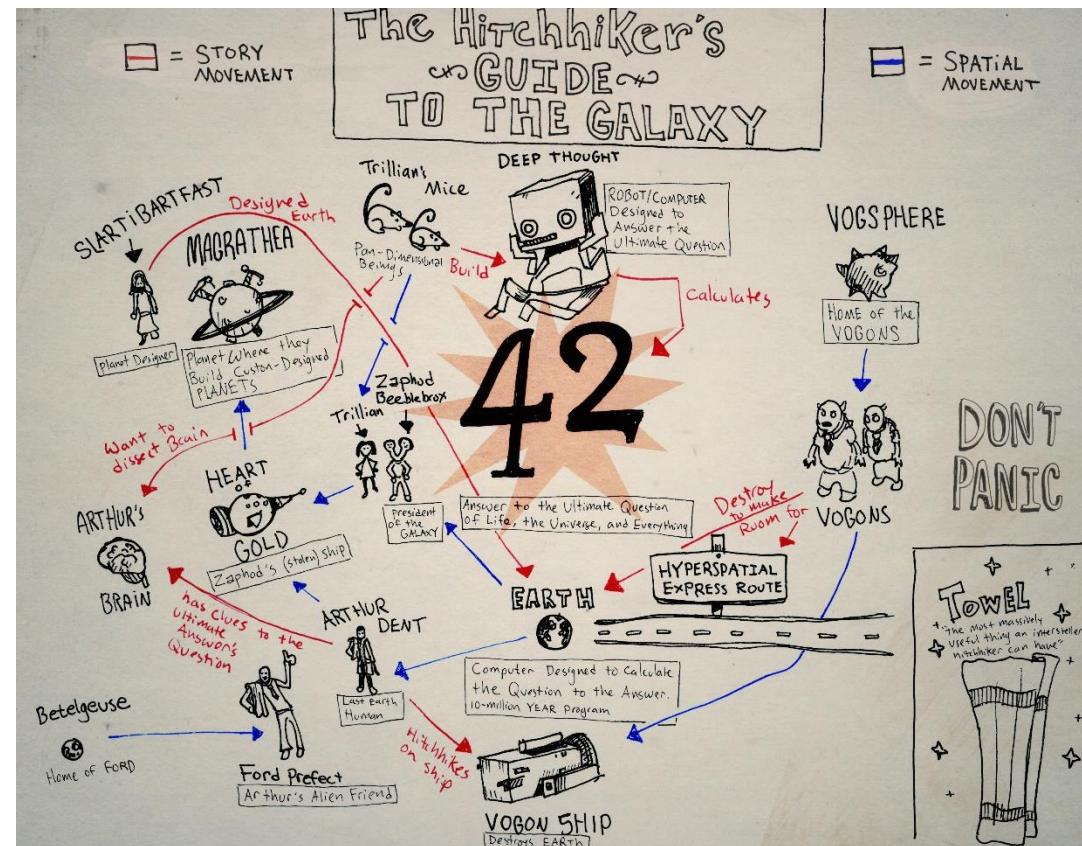 The Hitchhiker's
GUIDE
TO THE GALAXY
= STORY
MOVEMENT
= SPATIAL
MOVEMENT
SLARTiBARTFAST
Planet Designer
Designed
Earth
MAGRATHEA
Planet Where they
Build Custom-Designed
PLANETS
Trillian's
Mice
Pan-Dimensional
Beings
Build
DEEP THOUGHT
ROBOT/COMPUTER
Designed to
Answer the
Ultimate Question
Calculates
42
Answer to the Ultimate Question
of Life, the Universe, and Everything
VOGSPHERE
HOME OF the
VOGONS
VOGONS
Destroy
to make
Room for
HYPERSPATIAL
EXPRESS ROUTE
DON'T
PANIC
Zaphod
Beeblebrox
Trillian
President
of the
GALAXY
Want to
dissect Brain
HEART
OF
GOLD
Zaphod's (stolen) ship
ARTHUR'S
BRAIN
has clues to the
ultimate
Answer's
Question
ARTHUR
DENT
Last Earth
Human
EARTH
Computer Designed to Calculate
the Question to the Answer.
10-million YEAR program
Betelgeuse
Home of FORD
Ford Prefect
Arthur's Alien Friend
Hitchhikes
on ship
VOGON SHIP
Destroys EARTH
TOWEL
"the most massively
useful thing an interstellar
hitchhiker can have"